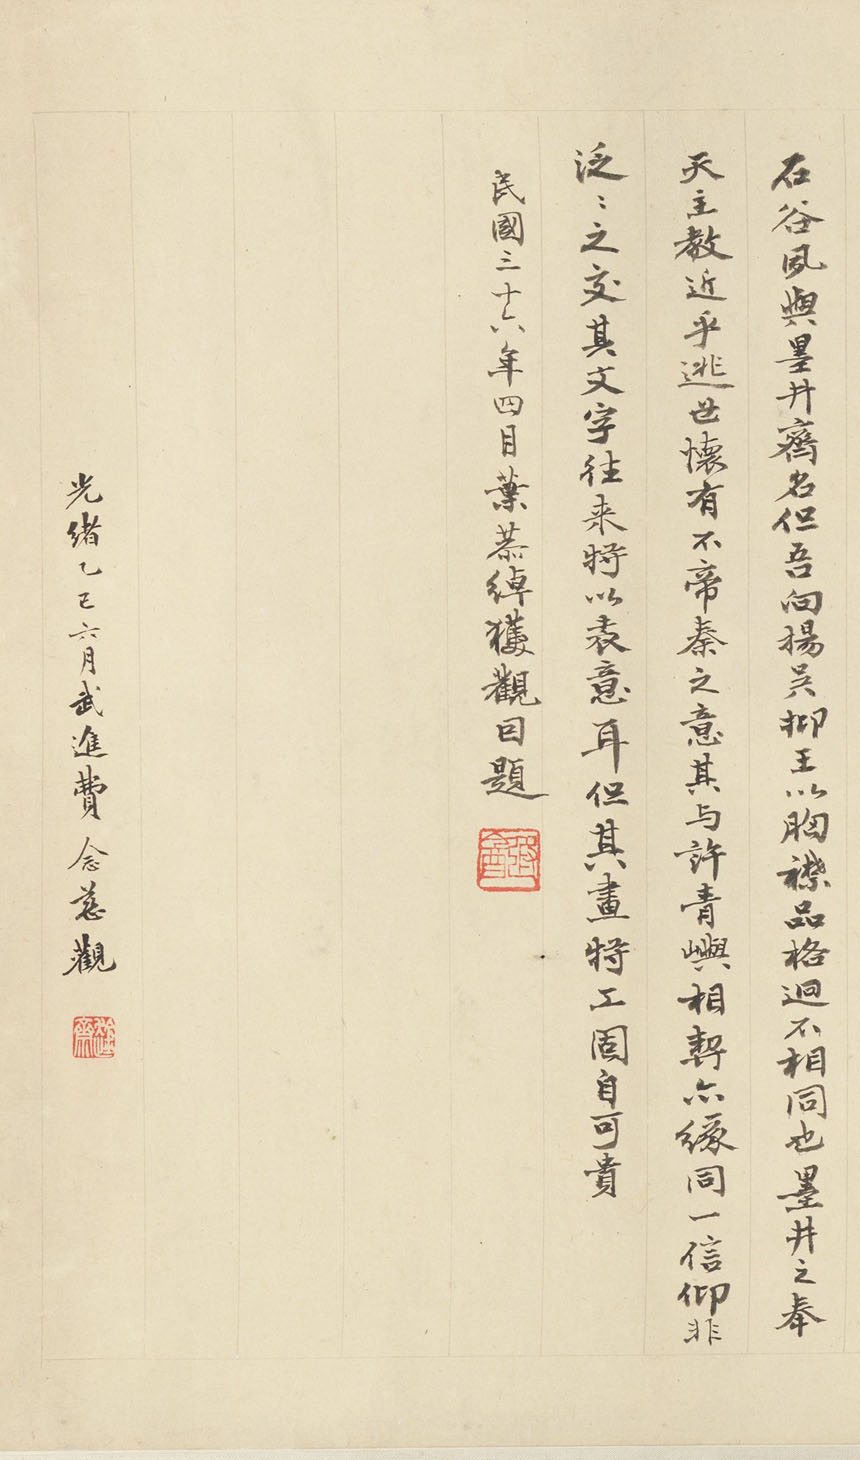 石谷夙與墨井齊名但吾向揚吳抑王以胸襟品格迥不相同也墨井之奉
天主教近乎逃世懷有不帝秦之意其与許青嶼相契亦緣同一信仰非
泛〻之交其文字往来特以表意耳但其畫特工固自可貴
民國三十六年四月葉恭綽獲觀因題
光緒乙巳六月武進費念慈觀